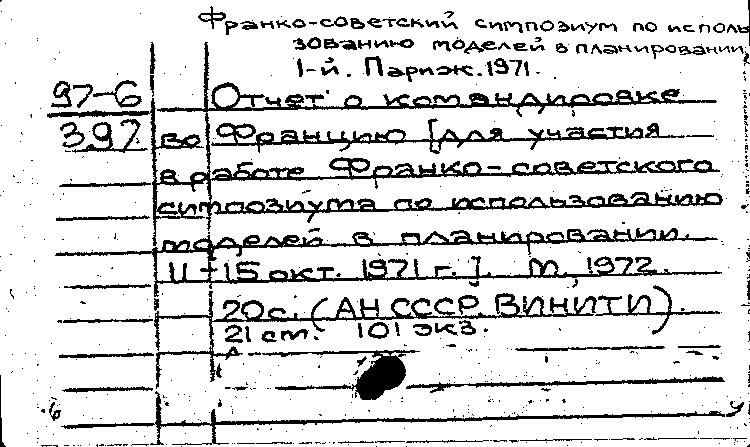 Франко-советский симпозиум по исполь
зованию моделей в планировании
1-й. Париж. 1971.
97-6
397
Отчет о командировке
во Францию [для участия
в работе Франко-советского
симпозиума по использованию
моделей в планировании.
11-15 окт. 1971 г.]. М., 1972.
20 с. (АН СССР. ВИНИТИ).
21 ст. 101 экз.